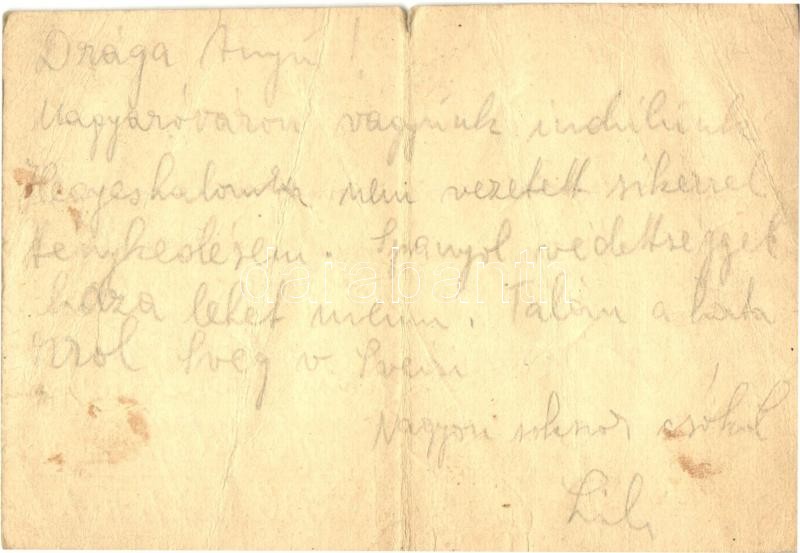 Drága Anyu!
Magyaróváron vagyunk indulunk
Hegyeshalomra nem vezetett sikerrel
ténykedésem. Spanyol védettséggel
haza lehet menni. Talán a hatá
rról Sveg v. Sveni
Nagyon sokszor csókol
Lili
darabanth